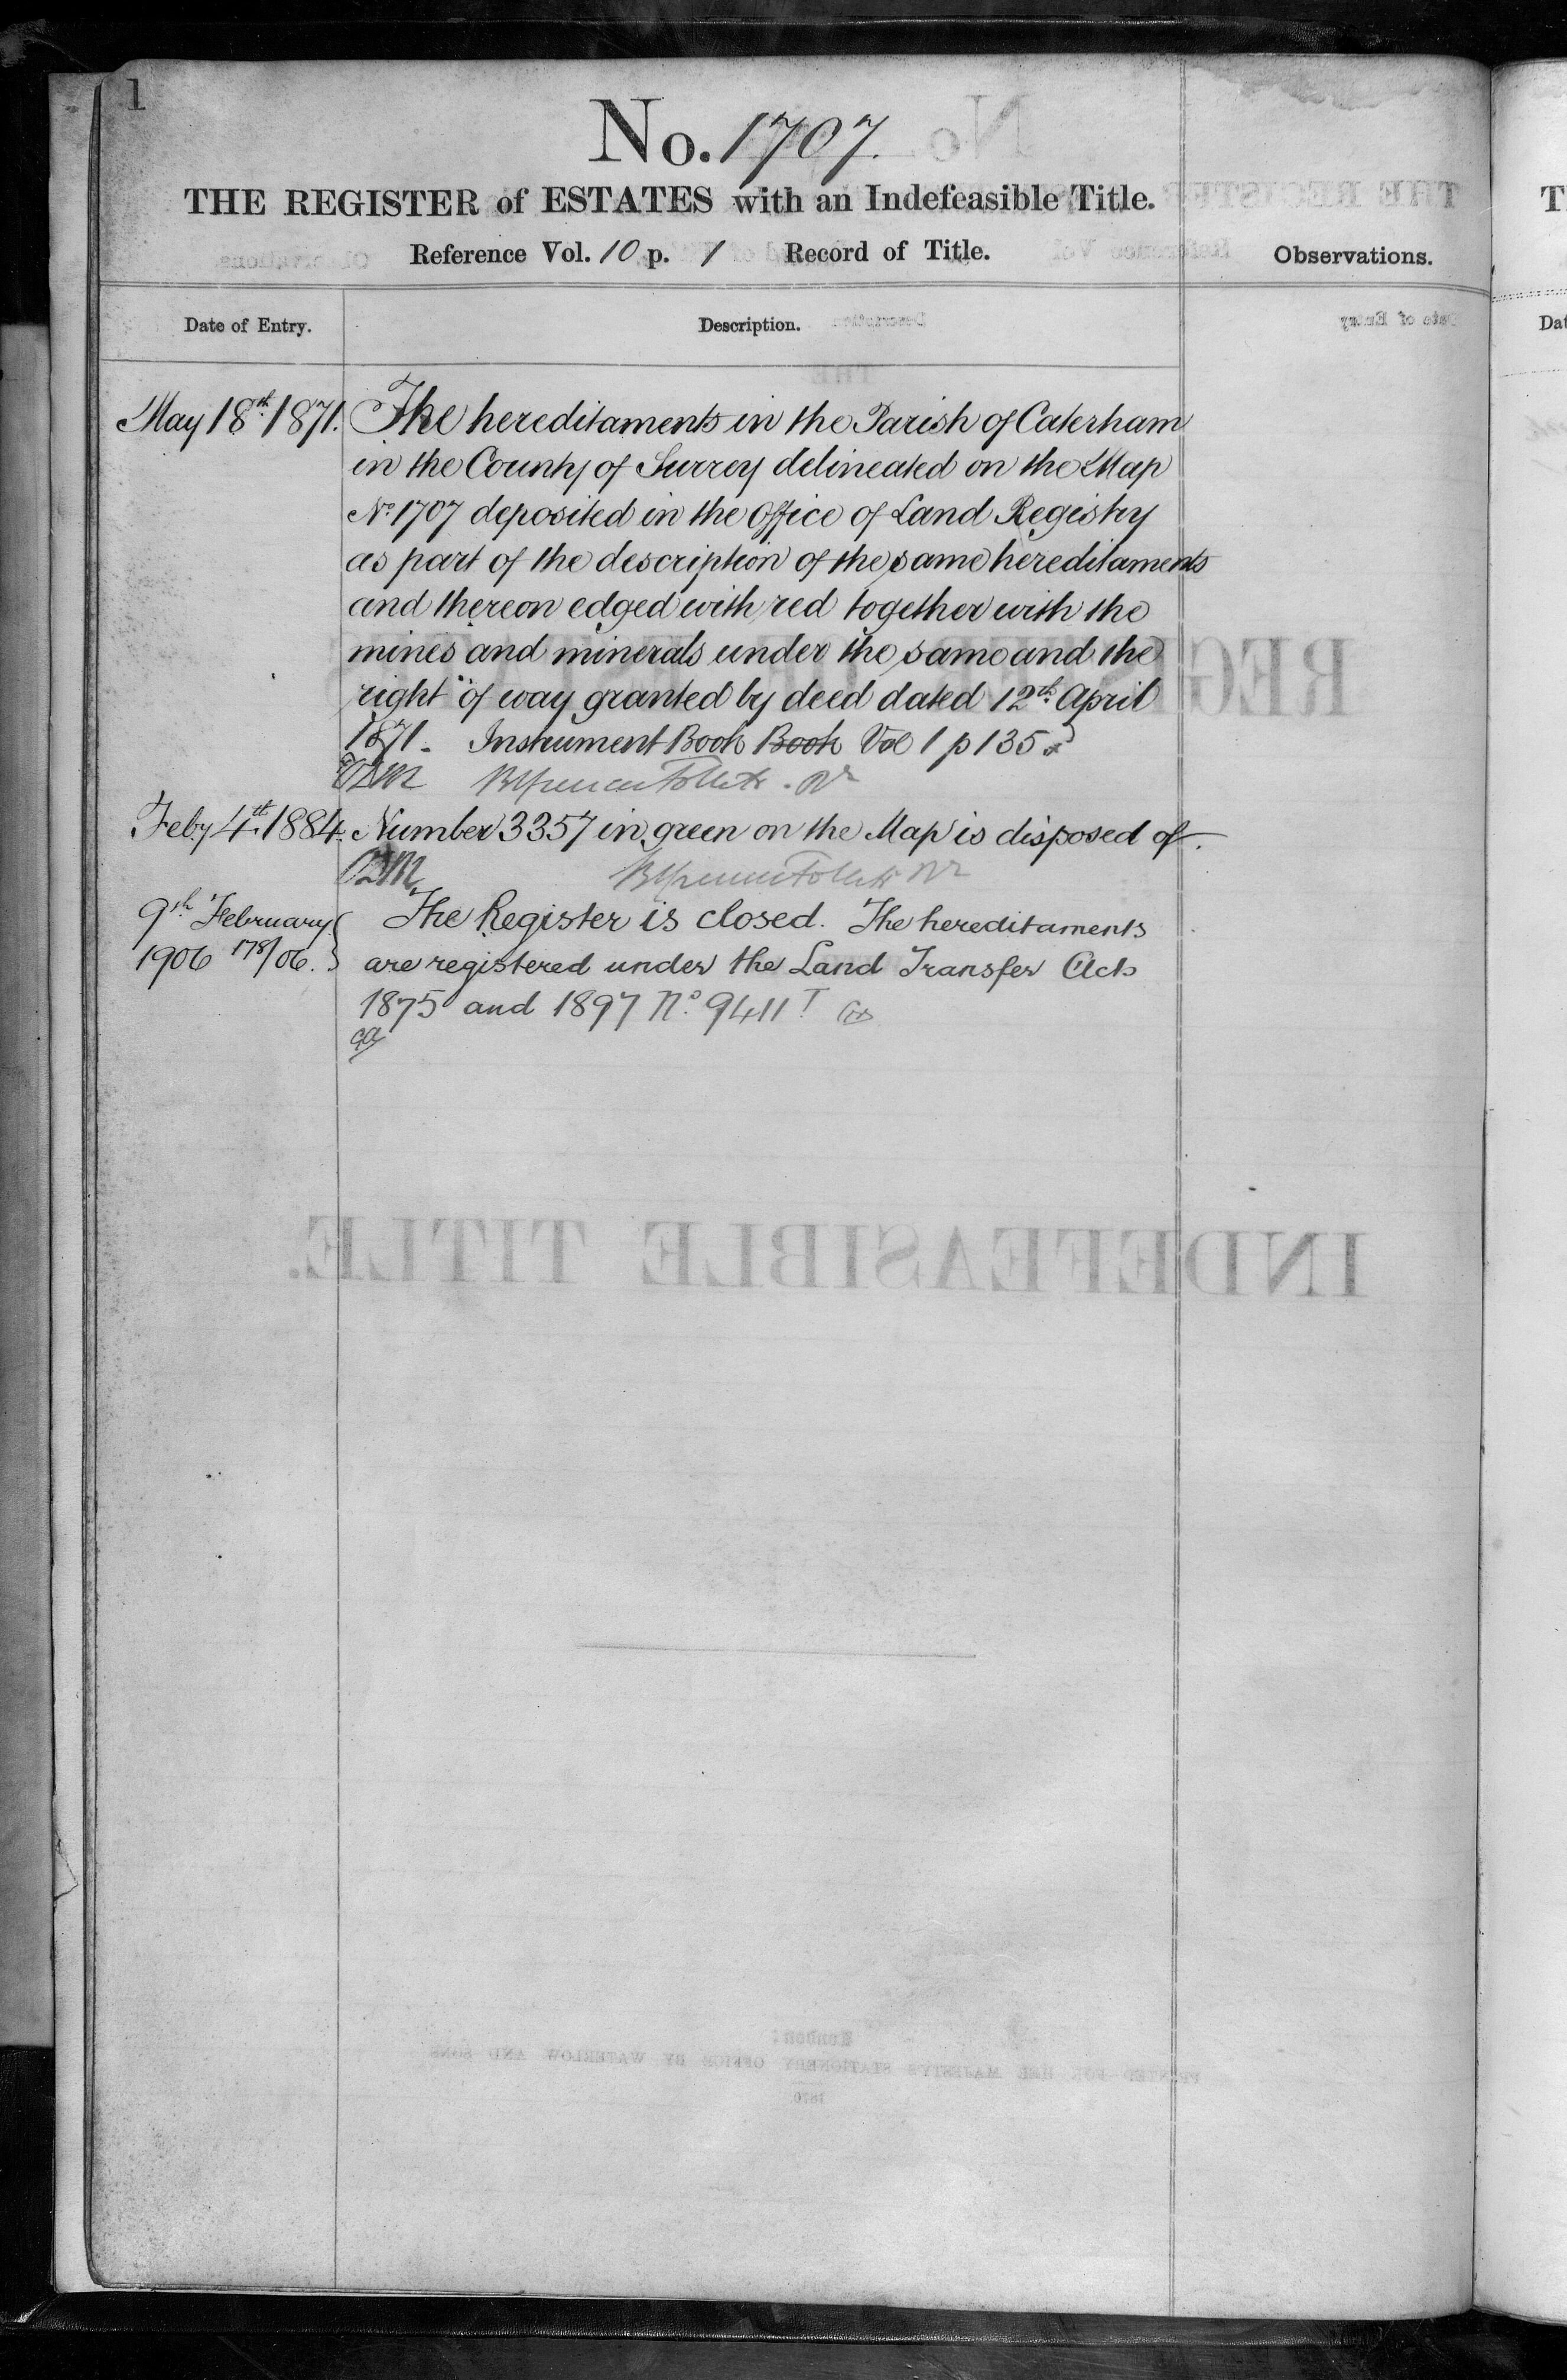 1
No. 1707.
THE REGISTER of ESTATES with an Indefeasible Title.
Reference Vol. 10 p. 1 Record of Title.
Observations.
Date of Entry.
Description.
May 18th 1871. The hereditaments in the Parish of Caterham
in the County of Surrey delineated on the Map
No. 1707 deposited in the Office of Land Registry
as part of the description of the same hereditaments
and thereon edged with red together with the
mines and minerals under the same and the
right of way granted by deed dated 12th April
1871. Instrument Book Book Vol 1 p 135
Feby 4th 1884. Number 3357 in green on the Map is disposed of.
9th February The Register is closed. The hereditaments
1906 178/06. are registered under the Land Transfer Acts
1875 and 1897 No. 9411 T
REGISTER
INDEFEASIBLE TITLE.
London:
PRINTED FOR HER MAJESTY'S STATIONERY OFFICE BY WATERLOW AND SONS
1870